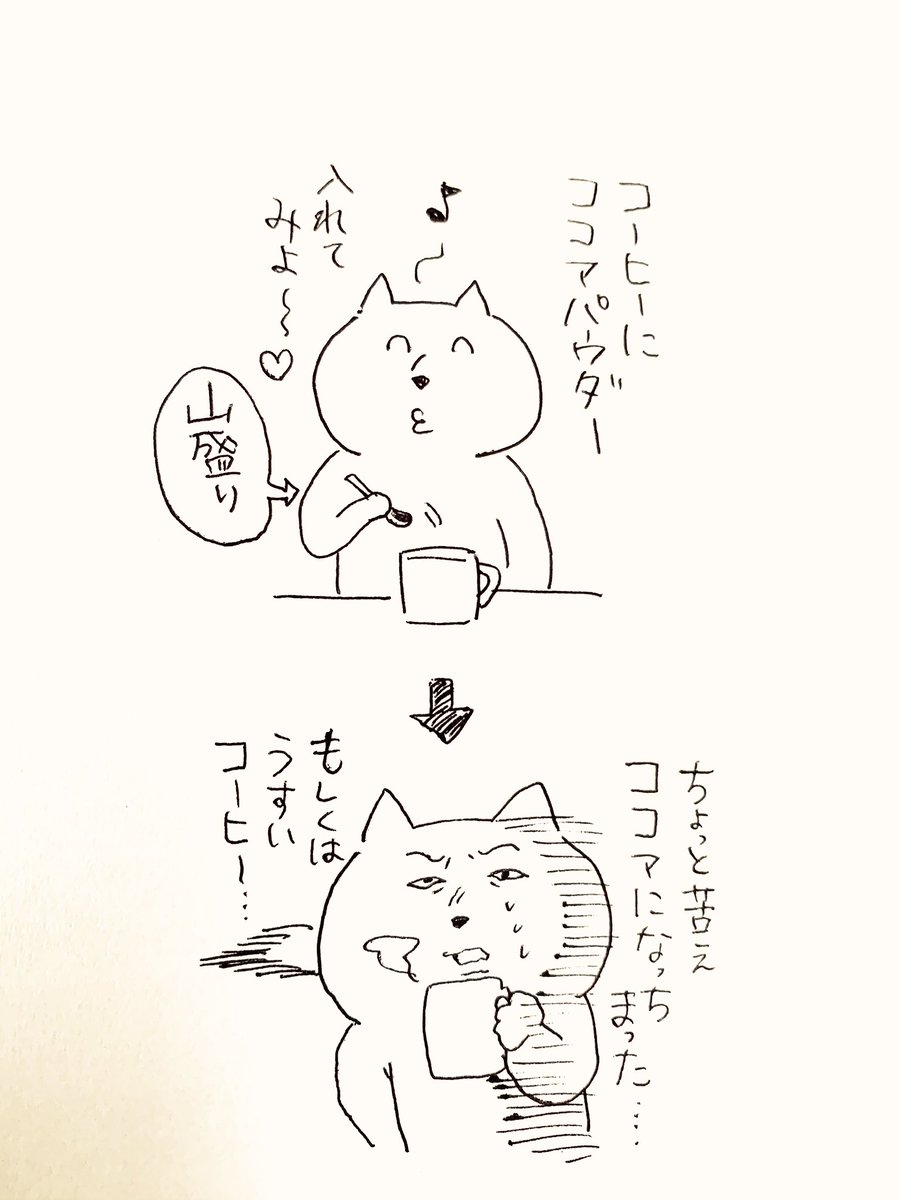 コーヒーに
ココアパウダー
入れて
みよ〜〜♡
山盛り
ちょっと苦え
ココアになっち
まった…
もしくは
うすい
コーヒー…